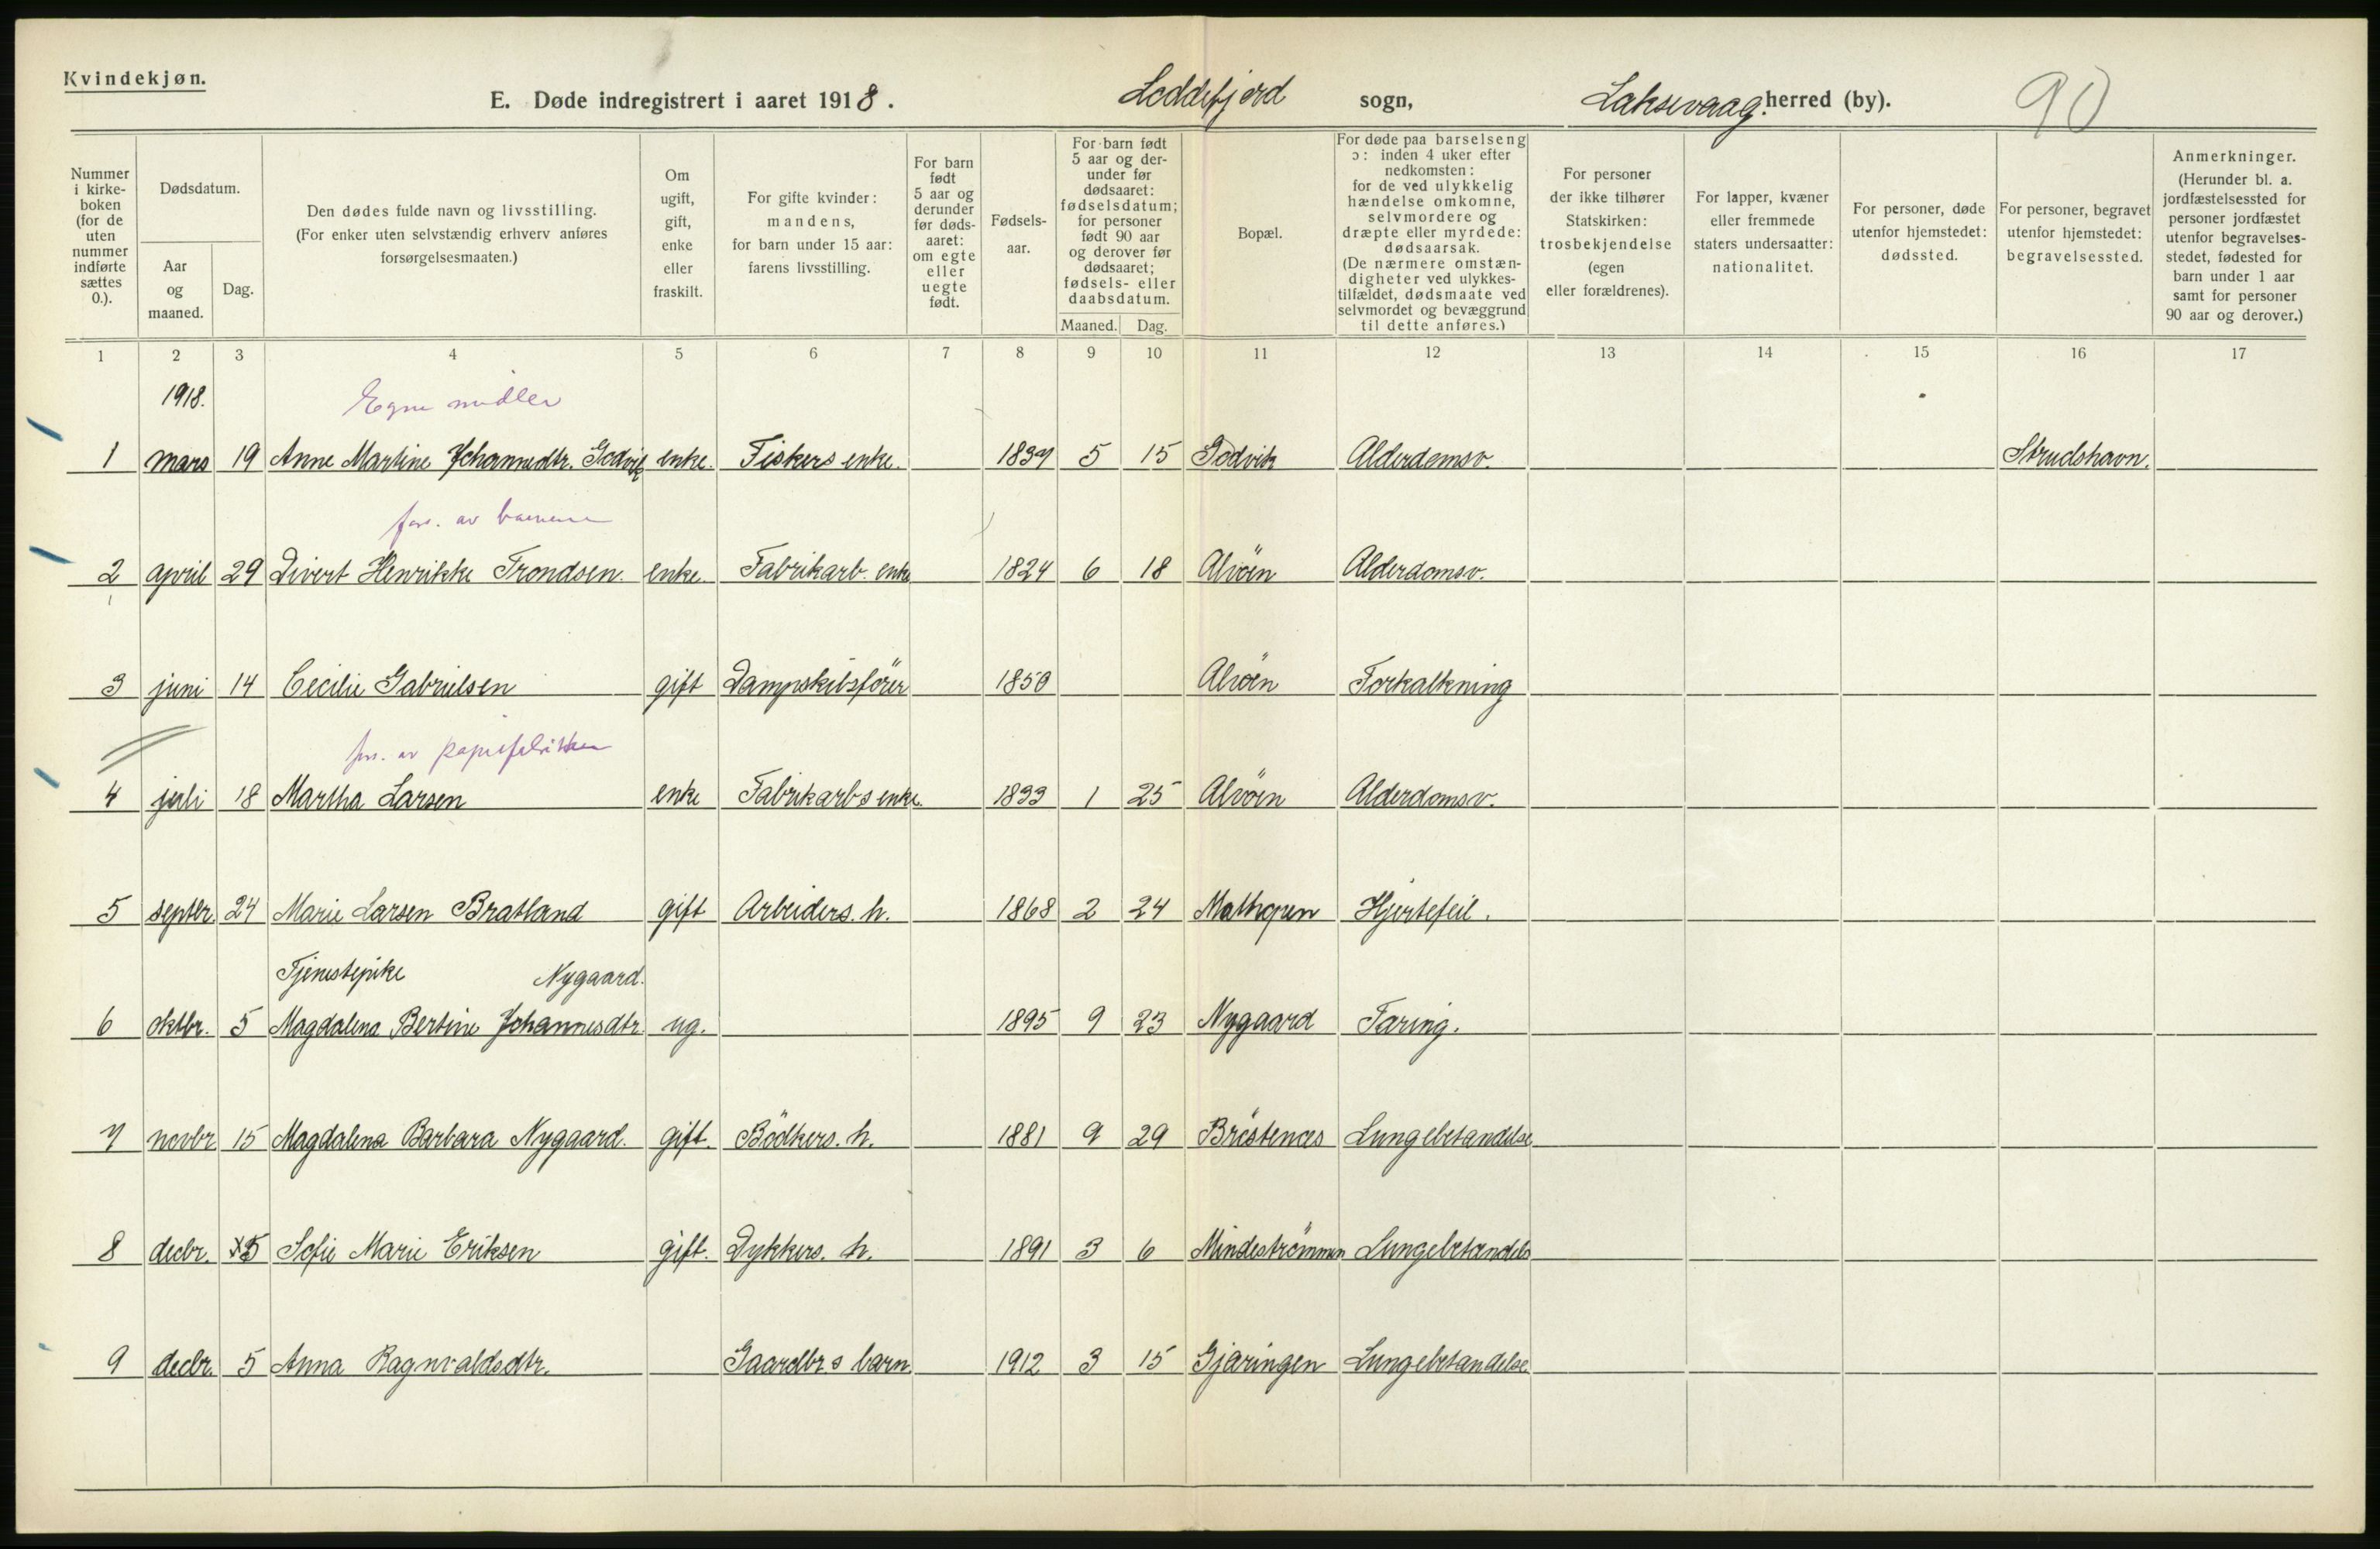 Kvindekjøn.
E. Døde indregistrert i aaret 1918. Loddefjord sogn, Laksevaag. herred (by). 90
Nummer i kirke- boken (for de uten nummer indførte sættes 0.).
Dødsdatum.
Aar og maaned.
Dag.
Den dødes fulde navn og livsstilling.
(For enker uten selvstændig erhverv anføres forsørgelsesmaaten.)
Om ugift, gift, enke eller fraskilt.
For gifte kvinder: mandens, for barn under 15 aar: farens livsstilling.
For barn født 5 aar og derunder før døds- aaret: om egte eller uegte født.
Fødsels- aar.
For barn født 5 aar og der- under før dødsaaret: fødselsdatum; for personer født 90 aar og derover før dødsaaret; fødsels- eller daabsdatum.
Maaned. Dag.
Bopæl.
For døde paa barselseng ɔ: inden 4 uker efter nedkomsten: for de ved ulykkelig hændelse omkomne, selvmordere og dræpte eller myrdede: dødsaarsak. (De nærmere omstæn- digheter ved ulykkes- tilfældet, dødsmaate ved selvmordet og bevæggrund til dette anføres.)
For personer der ikke tilhører Statskirken: trosbekjendelse (egen eller forældrenes).
For lapper, kvæner eller fremmede staters undersaatter: nationalitet.
For personer, døde utenfor hjemstedet: dødssted.
For personer, begravet utenfor hjemstedet: begravelsessted.
Anmerkninger. (Herunder bl. a. jordfæstelsessted for personer jordfæstet utenfor begravelses- stedet, fødested for barn under 1 aar samt for personer 90 aar og derover.)
1 2 3 4 5 6 7 8 9 10 11 12 13 14 15 16 17
1918. Egne midler
1 mars 19 Anne Martine Johannedtr. Godvik enke. Fiskers enke. 1837 5 15 Godvik Alderdomsv. Strudshavn.
fors. av barnene
2 april 29 Divert Henrikke Trondsen. enke. Fabrikarb. enke 1824 6 18 Alvöen Alderdomsv.
3 juni 14 Cecilie Gabrielsen gift Dampskibsförer 1850 Alvöen Forkalkning
fors. av papirfabrikken
4 juli 18 Martha Larsen enke Fabrikarbs enke. 1833 1 25 Alvöen Alderdomsv.
5 septbr. 24 Marie Larsen Bratland gift Arbeiders. h. 1868 2 24 Mathopen Hjertefeil.
Tjenestepike Nygaard.
6 oktbr. 5 Magdalena Bertine Johannesdtr ug. 1895 9 23 Nygaard Tæring.
7 novbr 15 Magdalena Barbara Nygaard. gift. Bödkers. h. 1881 9 29 Bröstenes Lungebetændelse
8 decbr. 5 Sofie Marie Eriksen gift. Dykkers. h. 1891 3 6 Mindeströmmen Lungebetændels
9 decbr. 5 Anna Ragnvaldsdtr. Gaardbrs barn 1912 3 15 Gjæringen Lungebetændelse.